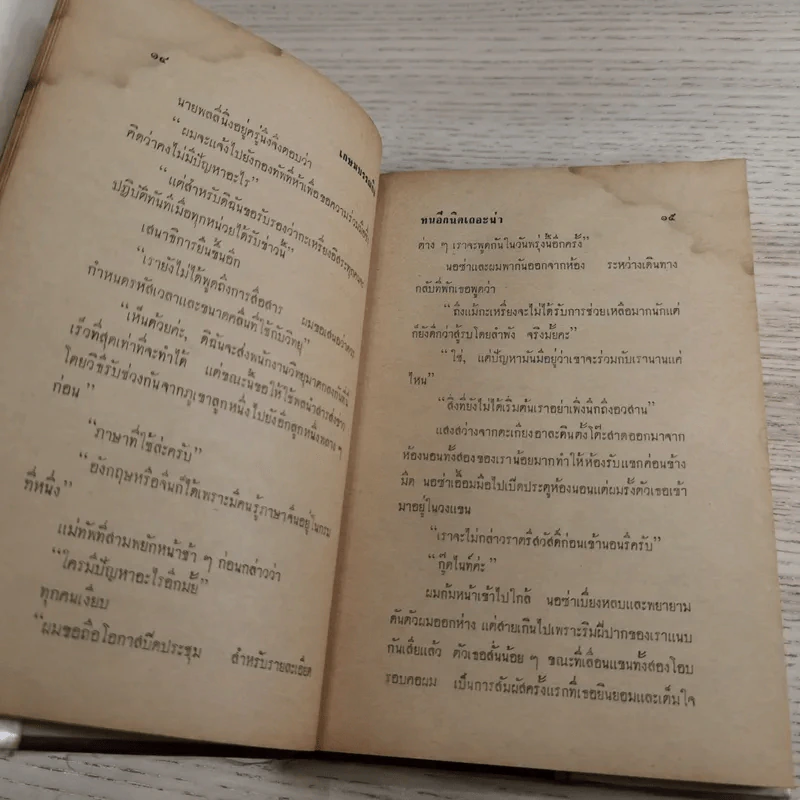 ๑๔
นายพลลีนิ่งอยู่ครู่นึงจึงตอบว่า
“ผมจะแจ้งไปยังกองทัพที่ห้าเพื่อขอความร่วมมือซึ่ง
คิดว่าคงไม่มีปัญหาอะไร”
“แต่สำหรับดิฉันขอรับรองว่ากะเหรี่ยงอิสระทุกคนจะ
ปฏิบัติทันทีเมื่อทุกหน่วยได้รับข่าวนี้”
เสนาธิการยืนขึ้นอีก
“เรายังไม่ได้พูดถึงการสื่อสาร ผมขอเสนอว่าควร
กำหนดรหัสเวลาและขนาดคลื่นที่ใช้กับวิทยุ”
“เห็นด้วยค่ะ, ดิฉันจะส่งพนักงานวิทยุมาตกลงกันที่นี่
เร็วที่สุดเท่าที่จะทำได้ แต่ขณะนี้ขอให้ใช้พลนำสารส่งข่าว
โดยวิธีรับช่วงกันจากภูเขาลูกหนึ่งไปยังอีกลูกหนึ่งพลาง ๆ
ก่อน”
“ภาษาที่ใช้ล่ะครับ”
“อังกฤษหรือจีนก็ได้เพราะมีคนรู้ภาษาจีนอยู่ในกรม
ที่หนึ่ง”
แม่ทัพที่สามพยักหน้าช้า ๆ ก่อนกล่าวว่า
“ใครมีปัญหาอะไรอีกมั้ย”
ทุกคนเงียบ
“ผมขอถือโอกาสปิดประชุม สำหรับรายละเอียด
ทนอีกนิดเถอะน่า
๑๕
ต่าง ๆ เราจะพูดกันในวันพรุ่งนี้อีกครั้ง”
นอซ่าและผมพากันออกจากห้อง ระหว่างเดินทาง
กลับที่พักเธอพูดว่า
“ถึงแม้กะเหรี่ยงจะไม่ได้รับการช่วยเหลือมากนักแต่
ก็ยังดีกว่าสู้รบโดยลำพัง จริงมั้ยคะ”
“ใช่, แต่ปัญหามันมีอยู่ว่าเขาจะร่วมกับเรานานแค่
ไหน”
“สิ่งที่ยังไม่ได้เริ่มต้นเราอย่าเพิ่งนึกถึงอวสาน”
แสงสว่างจากตะเกียงอาละดินตั้งโต๊ะสาดออกมาจาก
ห้องนอนทั้งสองของเราน้อยมากทำให้ห้องรับแขกค่อนข้าง
มืด นอซ่าเอื้อมมือไปเปิดประตูห้องนอนแต่ผมรั้งตัวเธอเข้า
มาอยู่ในวงแขน
“เราจะไม่กล่าวราตรีสวัสดิ์ก่อนเข้านอนรึครับ”
“กู๊ดไนท์ค่ะ”
ผมก้มหน้าเข้าไปใกล้ นอซ่าเบี่ยงหลบและพยายาม
ดันตัวผมออกห่าง แต่สายเกินไปเพราะริมฝีปากของเราแนบ
กันเสียแล้ว ตัวเธอสั่นน้อย ๆ ขณะที่เลื่อนแขนทั้งสองโอบ
รอบคอผม เป็นการสัมผัสครั้งแรกที่เธอยินยอมและเต็มใจ